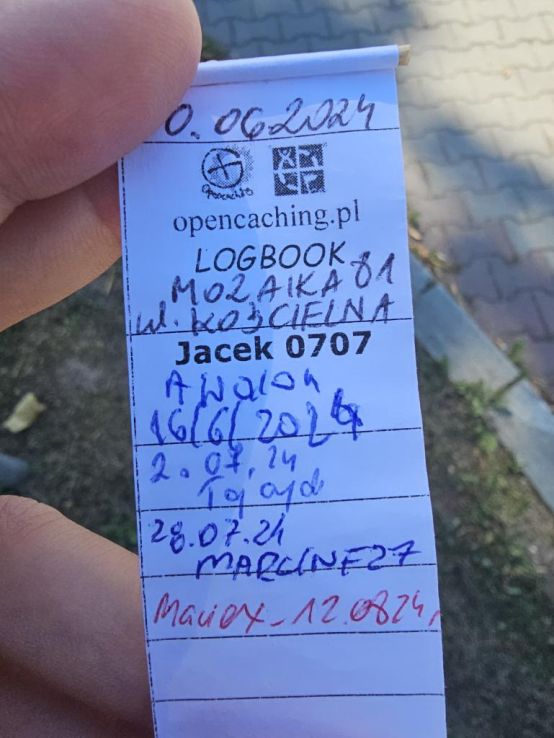 0.06.2024
opencaching.pl
LOGBOOK
MOZAIKA 81
ul. KOŚCIELNA
Jacek 0707
Awalon
16/6/2024
2.07.24
28.07.24
MARCINF27
Maciex - 12.0824,